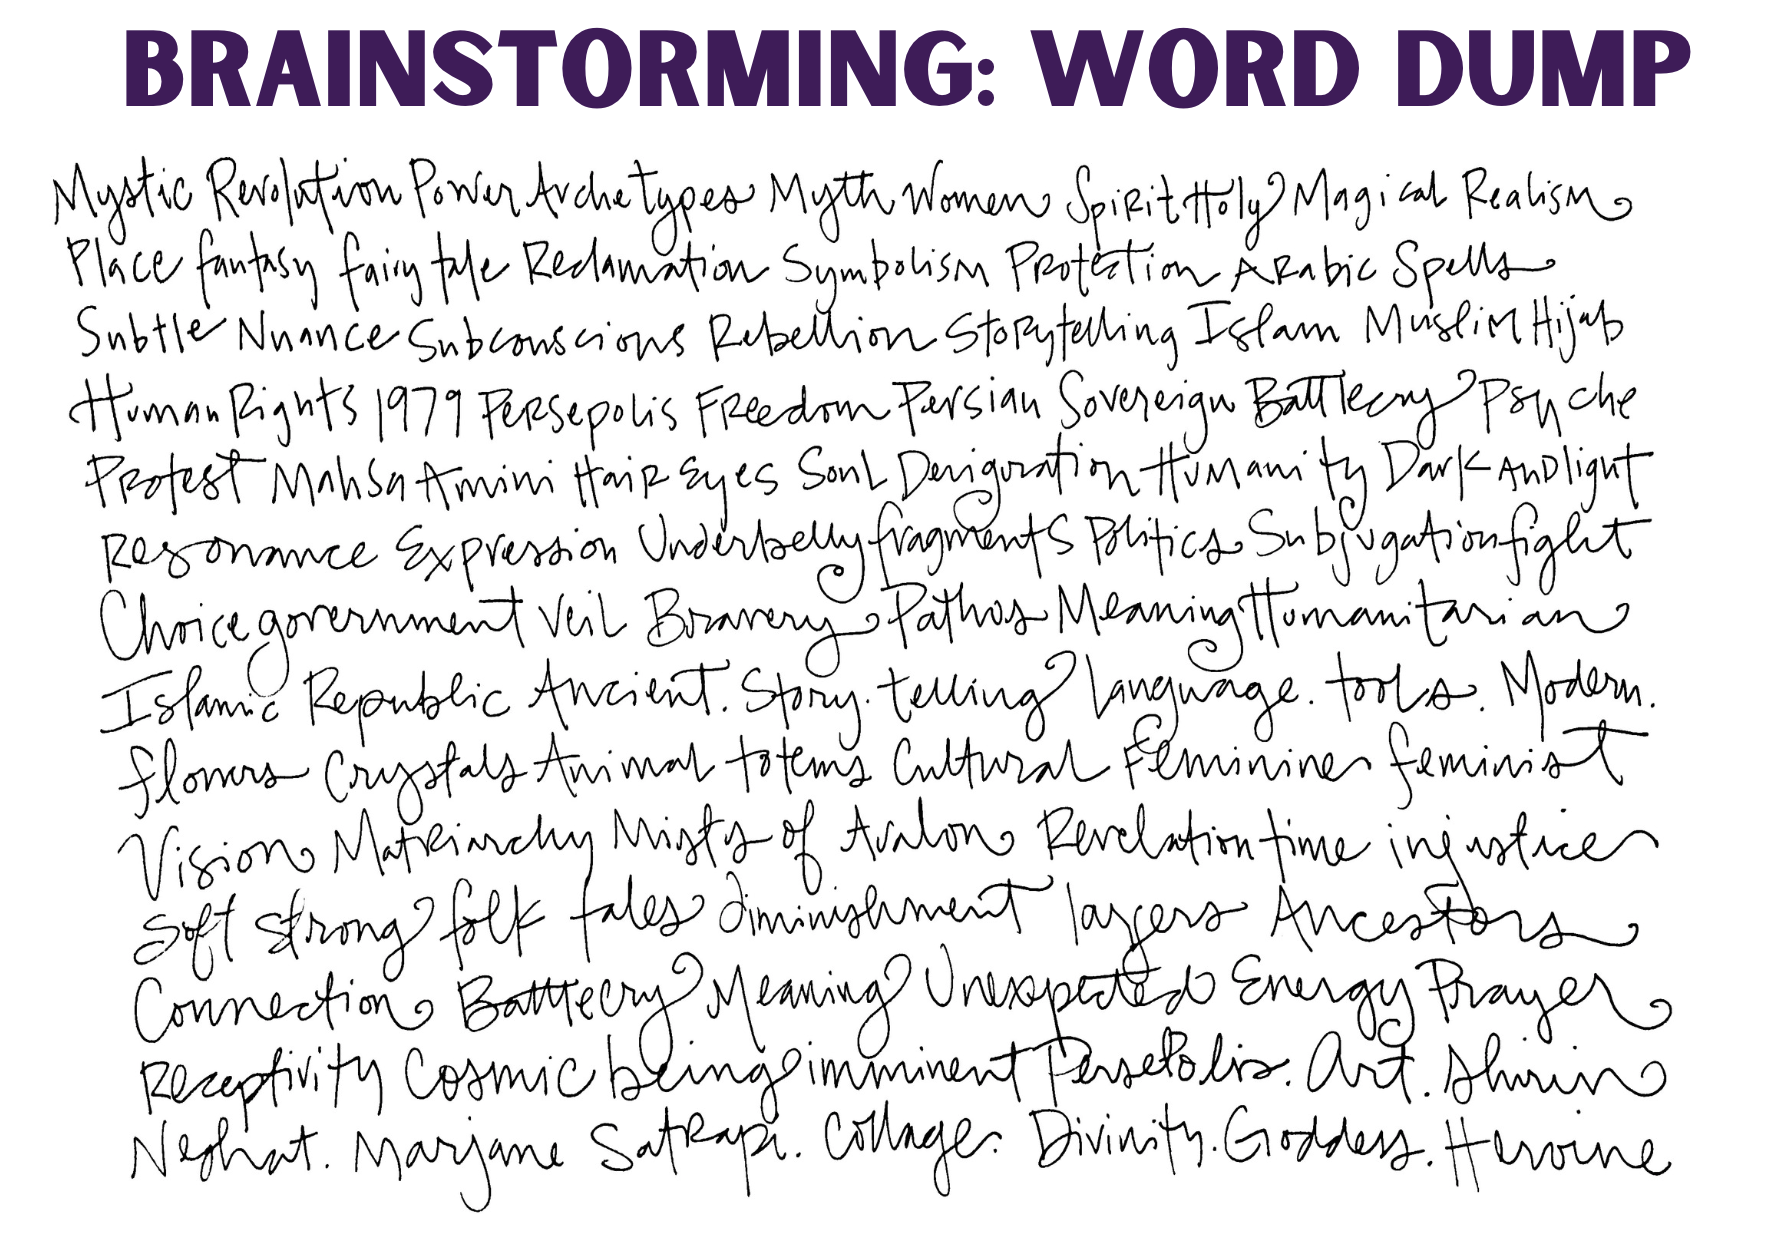 BRAINSTORMING: WORD DUMP
Mystic Revolution Power Archetypes Myth Women Spirit Holy Magical Realism
Place fantasy fairy tale Reclamation Symbolism Protection Arabic Spells
Subtle Nuance Subconscious Rebellion Storytelling Islam Muslim Hijab
Human Rights 1979 Persepolis Freedom Persian Sovereign Battlecry Psyche
Protest Mahsa Amini Hair Eyes Soul Denigration Humanity Dark AND light
Resonance Expression Underbelly fragments Politics Subjugation fight
Choice government Veil Bravery Pathos Meaning Humanitarian
Islamic Republic Ancient. Story. telling language. tools. Modern.
flowers Crystals Animal totems Cultural Feminine feminist
Vision Matriarchy Mists of Avalon Revelation time injustice
Soft strong folk tales diminishment layers Ancestors
Connection Battlecry Meaning Unexpected Energy Prayer
Receptivity Cosmic being imminent Persepolis. Art. Shirin
Neshat. Marjane Satrapi. Collage. Divinity. Goddess. Heroine